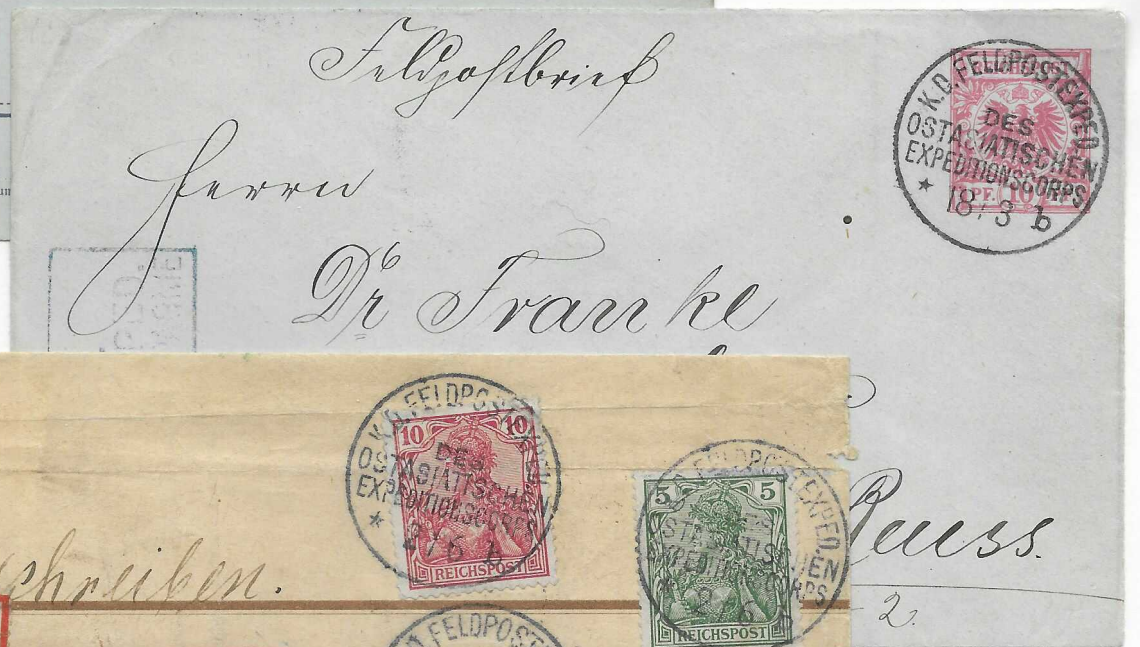 Feldpostbrief
K.D. FELDPOSTEXPED.
DES
OSTASIATISCHEN
EXPEDITIONSCORPS
* 18/3 b
PF. 10
Herrn
Dr Franke
Reuss.
2.
10 10
K.D. FELDPOSTEXPED.
DES
OSTASIATISCHEN
EXPEDITIONSCORPS
* 2/6 b
REICHSPOST
5 5
K.D. FELDPOSTEXPED.
DES
OSTASIATISCHEN
EXPEDITIONSCORPS
* 2/6 b
REICHSPOST
schreiben.
D. FELDPOST